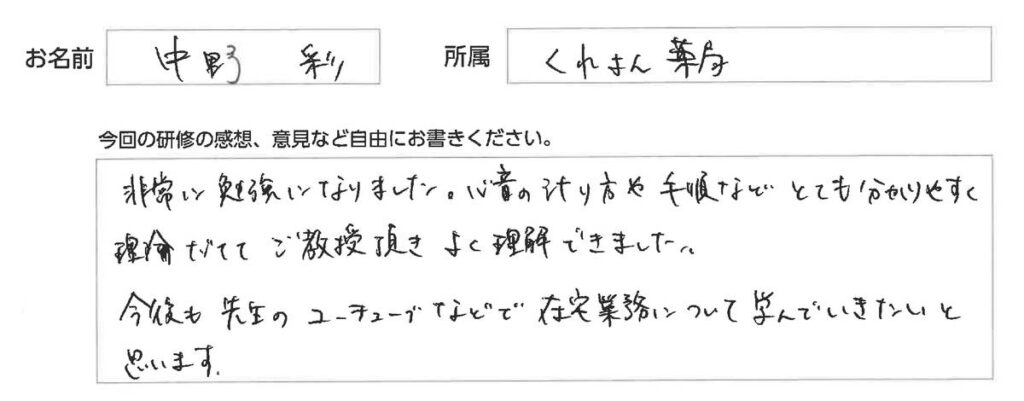 お名前 中野 彩 所属 くれよん薬局
今回の研修の感想、意見など自由にお書きください。
非常に勉強になりました。心音の計り方や手順などとても分かりやすく
理論だてて ご教授頂き よく理解できました。
今後も 先生の ユーチューブなどで 在宅業務について 学んでいきたいと
思います。